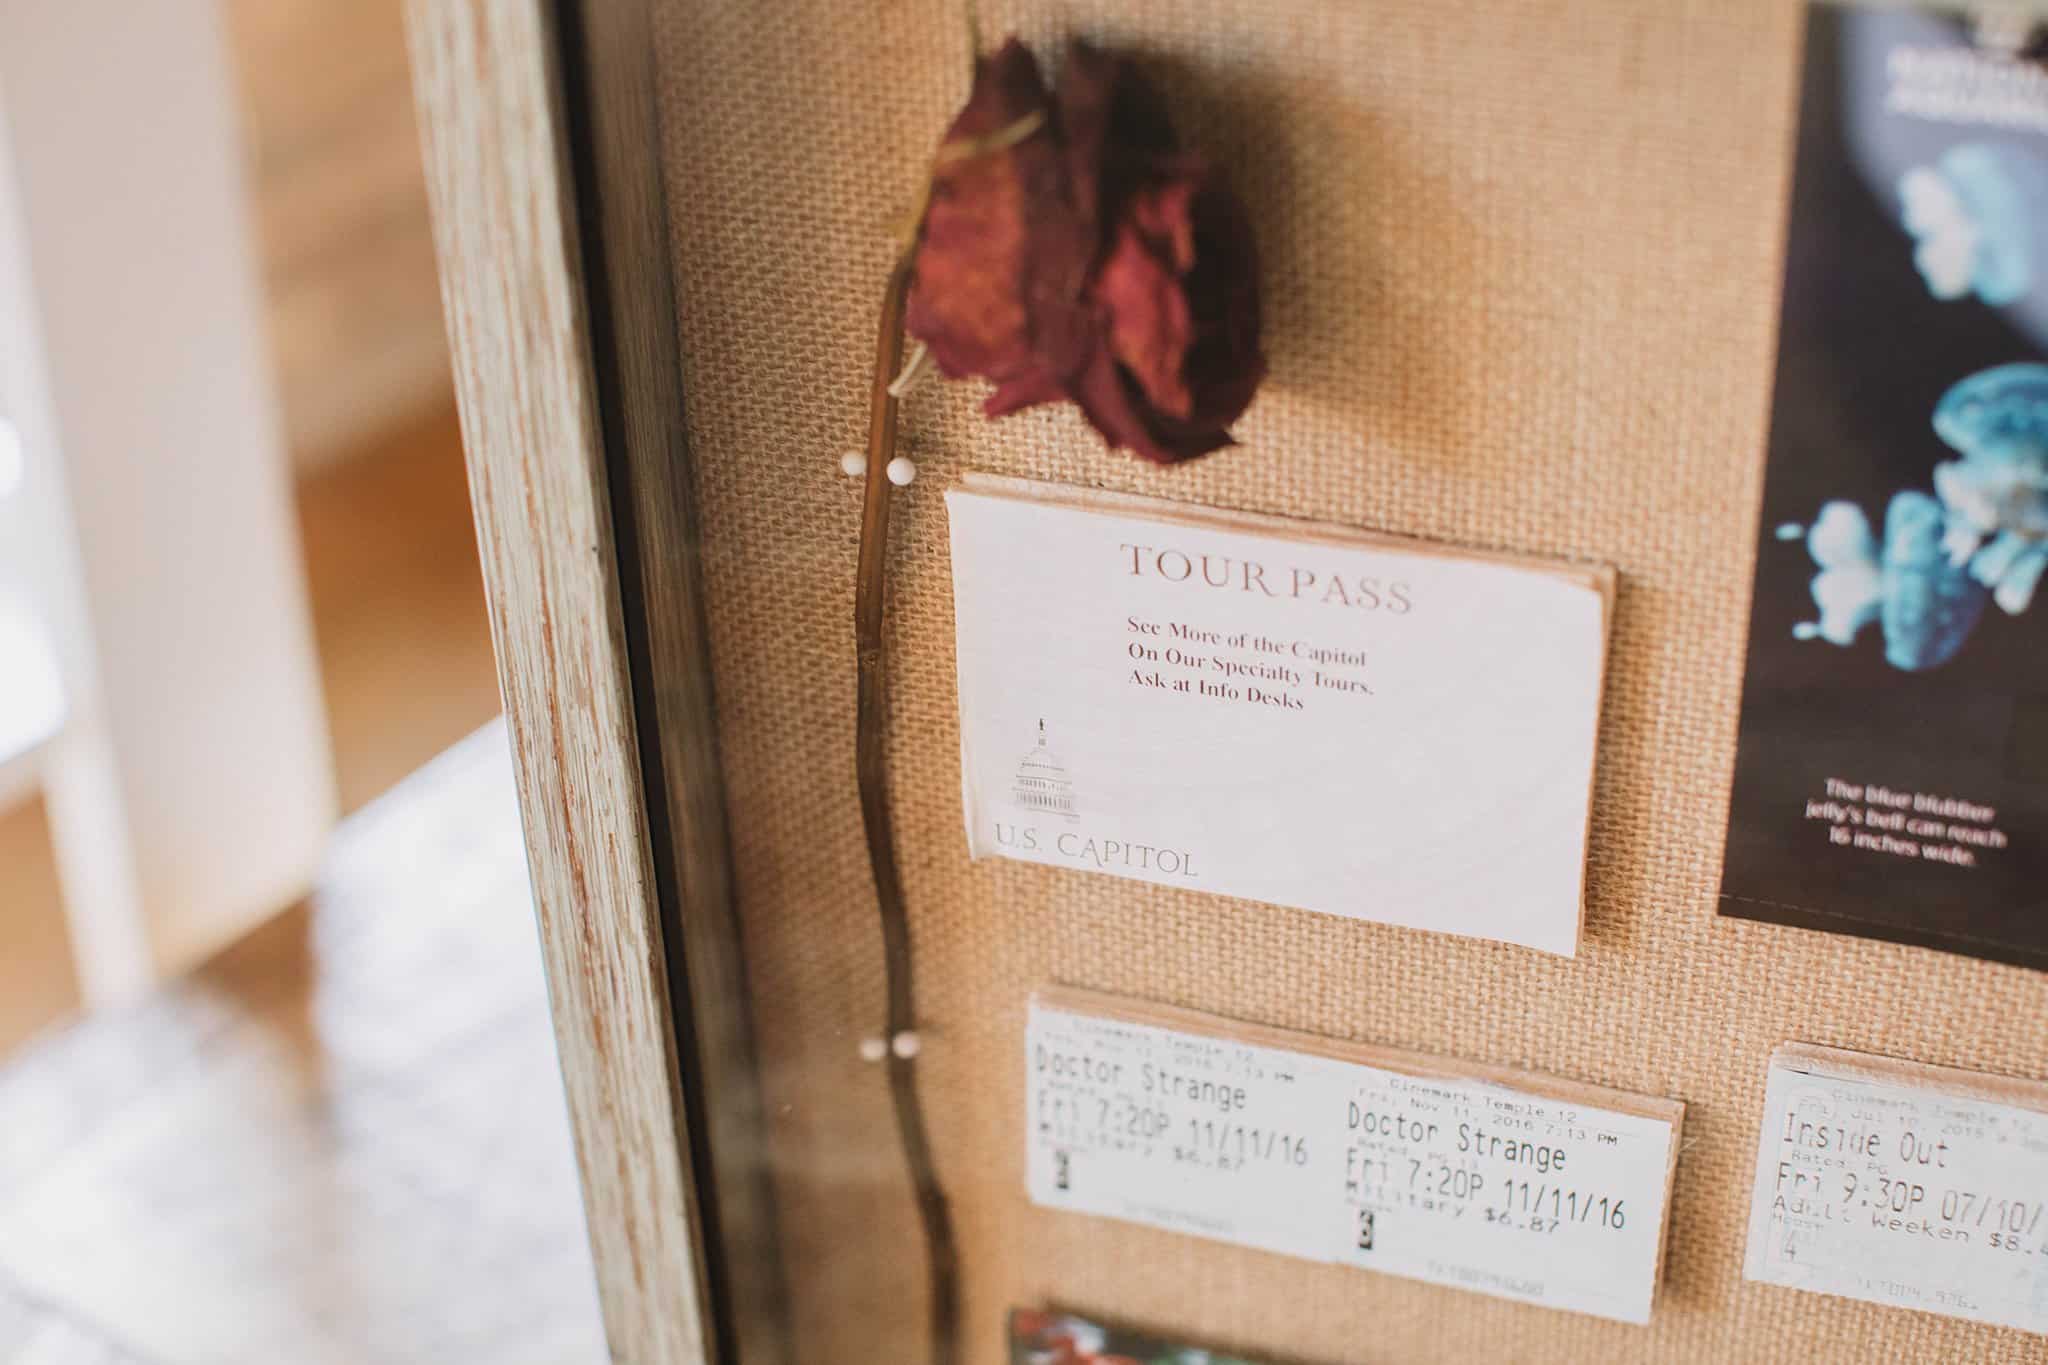 NATIONAL
AQUARIUM
TOUR PASS
See More of the Capitol
On Our Specialty Tours.
Ask at Info Desks
U.S. CAPITOL
The blue blubber
jelly's bell can reach
16 inches wide.
Cinemark Temple 12
2016 7:13 PM
Doctor Strange
Fri 7:20P 11/11/16
Military $6.87
Cinemark Temple 12
Fri, Nov 11, 2016 7:13 PM
Doctor Strange
Rated, PG-13
Fri 7:20P 11/11/16
Military $6.87
6
Cinemark Temple 12
Fri, Jul 10, 2015
Inside Out
Rated: PG
Fri 9:30P 07/10/
Adult Weeken $8.4
House
4